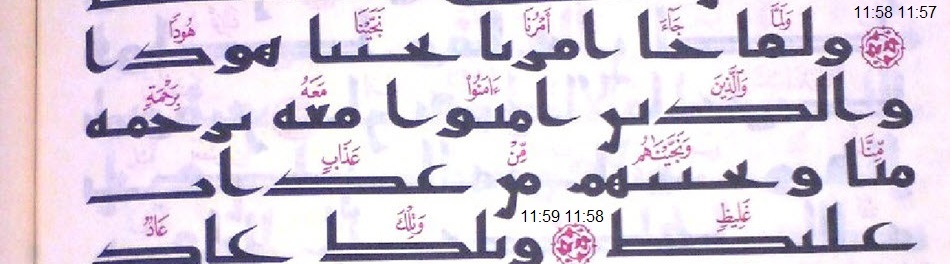 11:58 11:57
وَلَمَّا جَآءَ أَمْرُنَا نَجَّيْنَا هُودًا
ولما جا امرنا نجينا هودا
وَٱلَّذِينَ ءَامَنُوا۟ مَعَهُۥ بِرَحْمَةٍ
والذين امنوا معه برحمه
مِّنَّا وَنَجَّيْنَٰهُم مِّنْ عَذَابٍ
منا ونجينهم من عذاب
غَلِيظٍ 11:59 11:58 وَتِلْكَ عَادٌ
غليظ وتلك عاد